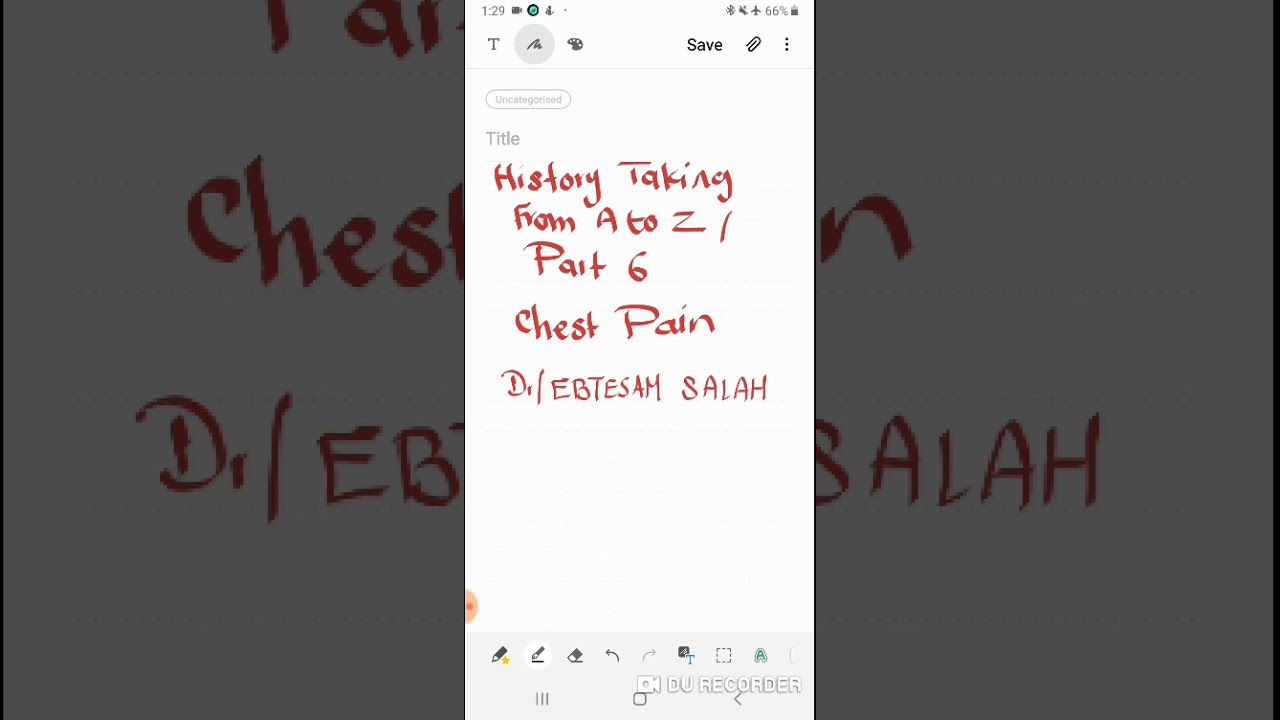 1:29
66%
T
Save
Uncategorised
Title
History Taking
From A to Z /
Part 6
Chest Pain
Dr/ EBTESAM SALAH
DU RECORDER